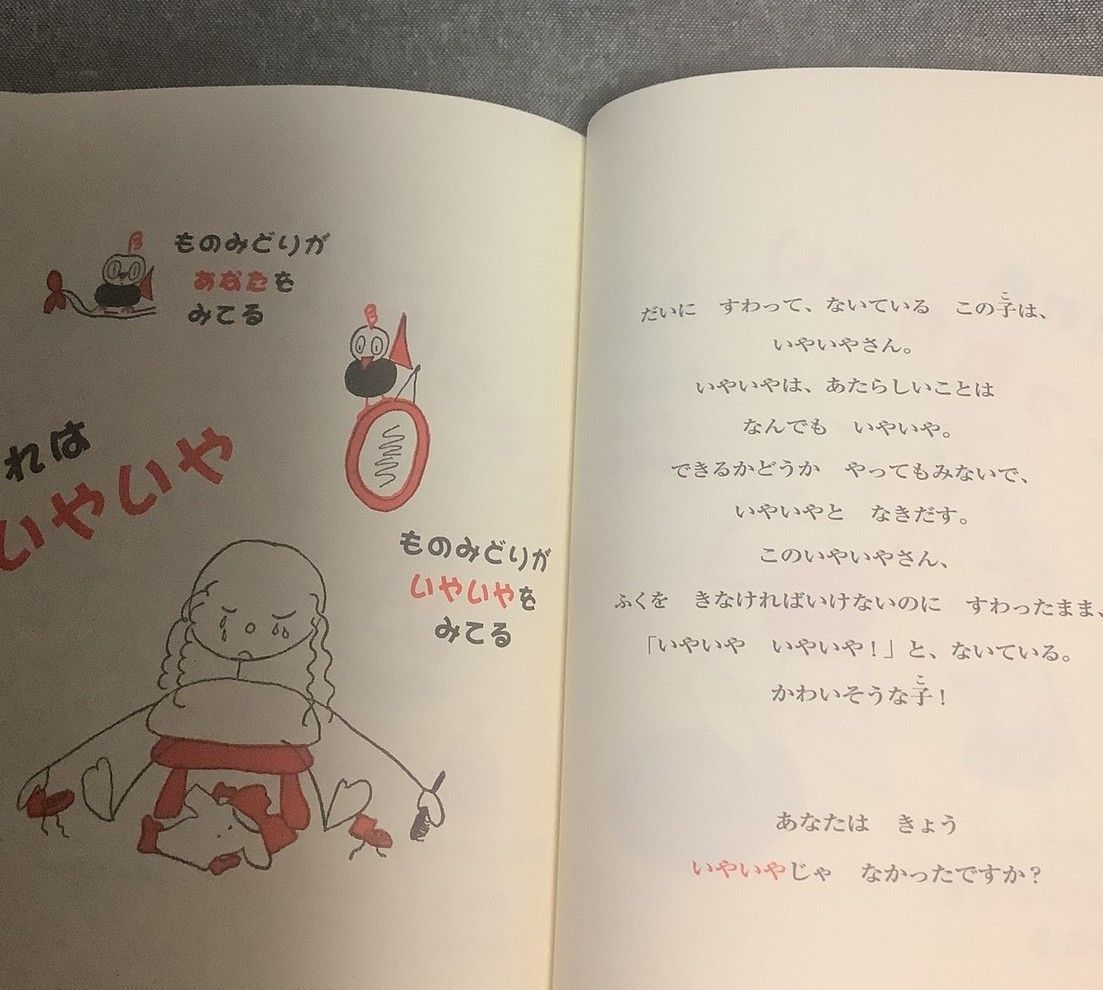 ものみどりが
あなたを
みてる
れは
いやいや
ものみどりが
いやいやを
みてる
だいに　すわって、ないている　この子は、
いやいやさん。
いやいやは、あたらしいことは
なんでも　いやいや。
できるかどうか　やってもみないで、
いやいやと　なきだす。
このいやいやさん、
ふくを　きなければいけないのに　すわったまま、
「いやいや　いやいや！」と、ないている。
かわいそうな子！
あなたは　きょう
いやいやじゃ　なかったですか？